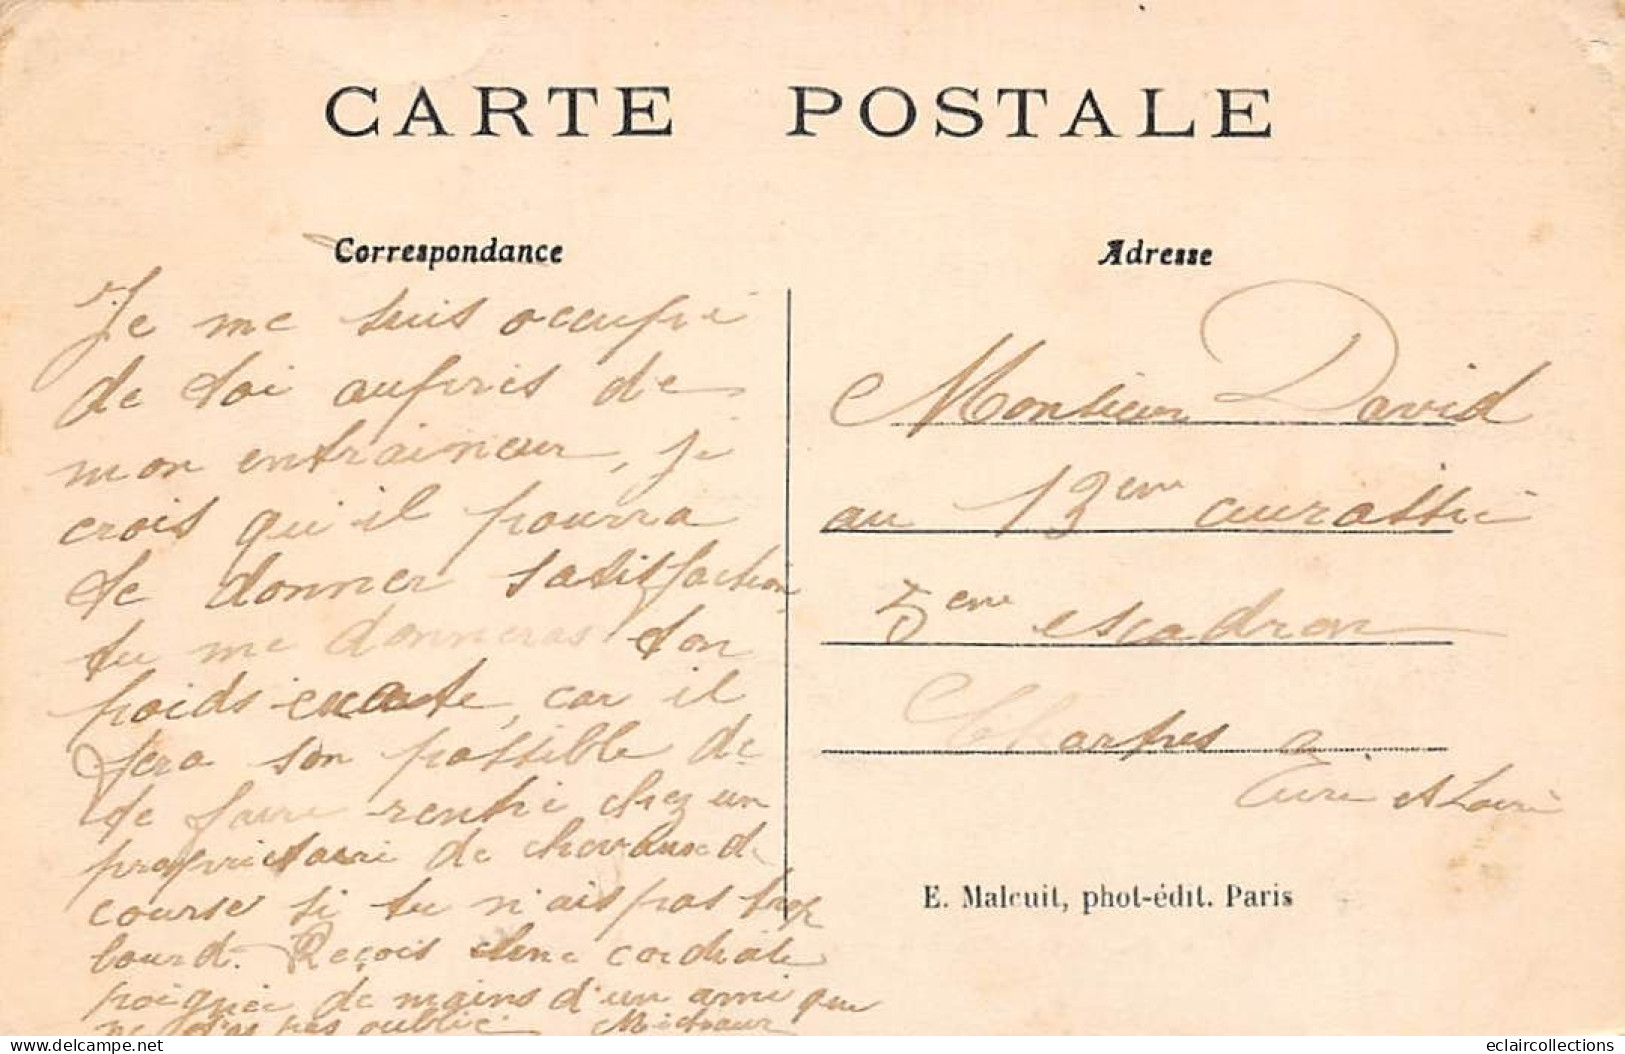 CARTE POSTALE
Correspondance
Je me suis occupé
de toi auprès de
mon entraineur, je
crois qu'il pourra
te donner satisfaction,
tu me donneras ton
poids exacte, car il
fera son possible de
te faire rentré chez un
proprietaire de chevaux de
course si tu n'ais pas trop
lourd. Reçois une cordiale
poignée de mains d'un ami que
ne t'as pas oublié
Adresse
Monsieur David
au 13eme cuirassié
5eme escadron
Chartres
Eure et Loire
E. Malcuit, phot-édit. Paris
eclaircollections
delcampe.net